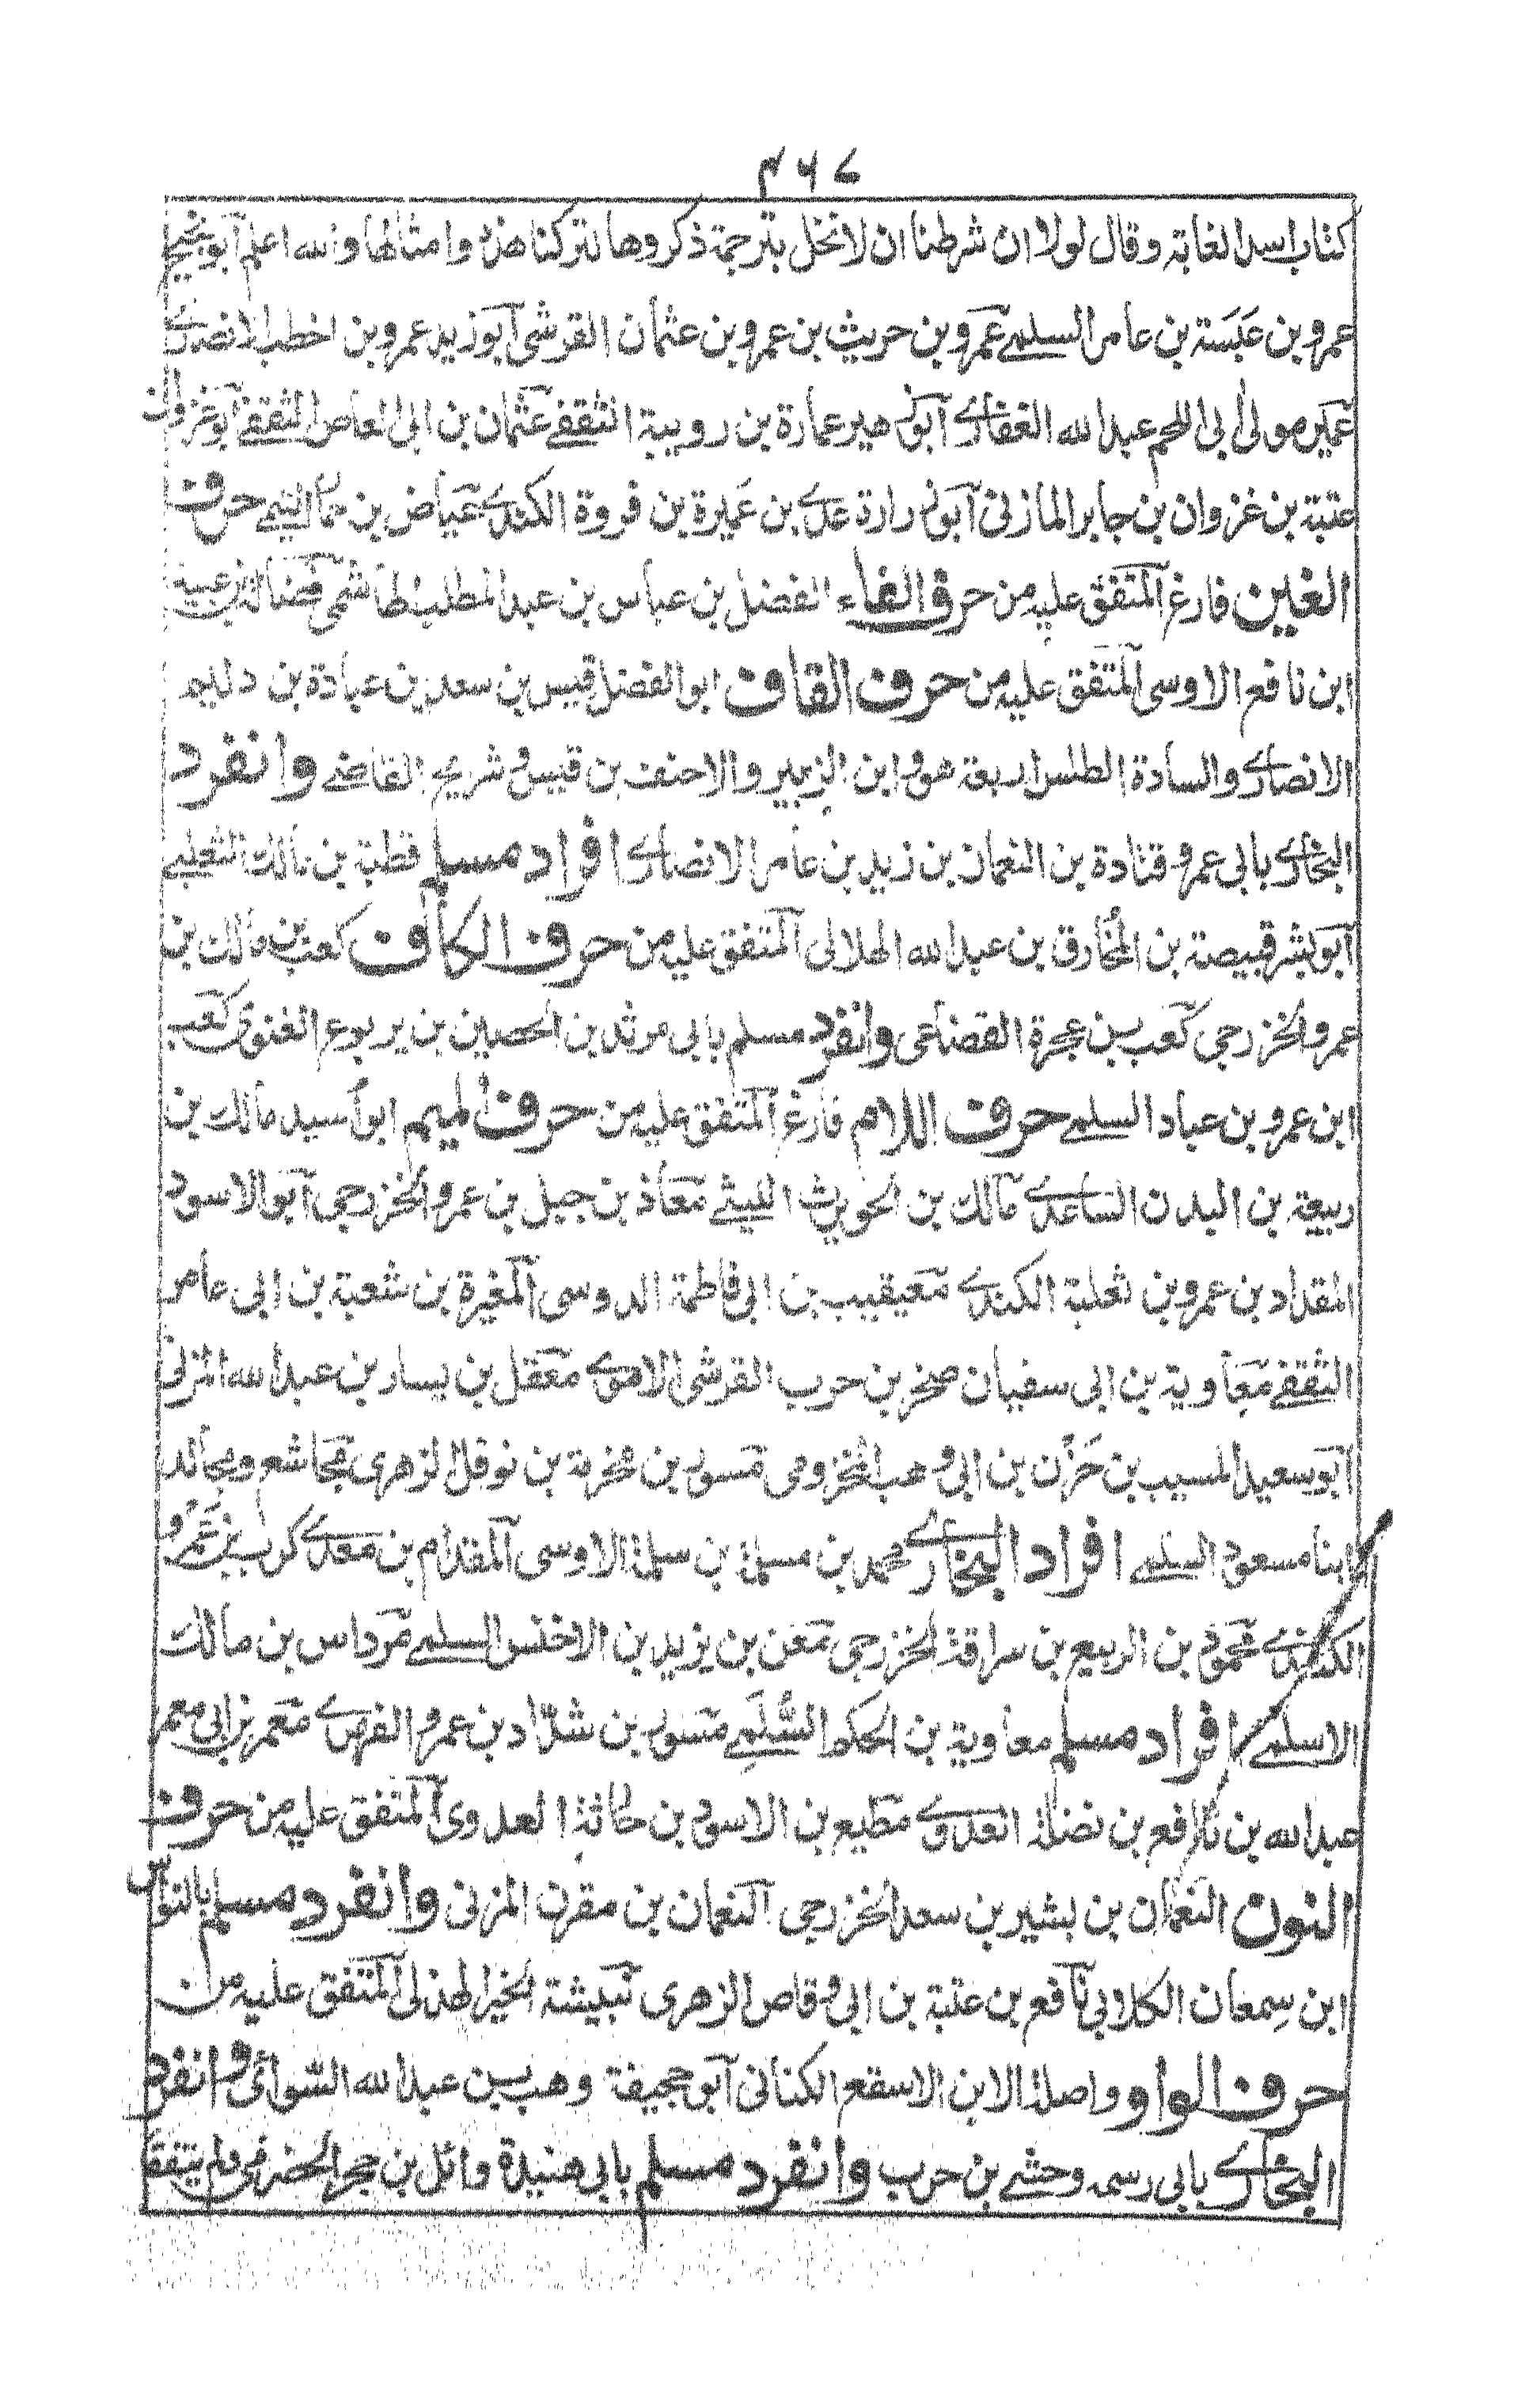 ۴۶۷
كتاب اسد الغابة وقال لولا ان شرطنا ان لا نخل بترجمة ذكروها لتركنا هذه وامثالها والله اعلم ابو نجيح
عمرو بن عبسة بن عامر السلمي عمرو بن حريث بن عمرو بن عثمان القرشي ابو زيد عمرو بن اخطب الانصاري
عمير مولى ابي اللحم عبد الله الغفاري ابو زهير عمارة بن رويبة الثقفي عثمان بن ابي العاص الثقفي ابو غزوان
عتبة بن غزوان بن جابر المازني ابو زرارة عدي بن عميرة بن فروة الكندي عياض بن حمار التيمي حرف
الغين فارغ المتفق عليه من حرف الفاء الفضل بن عباس بن عبد المطلب الهاشمي فضالة بن عبيد
ابن نافع الاوسي المتفق عليه من حرف القاف ابو الفضل قيس بن سعد بن عبادة بن دليم
الانصاري والسادة الطلس اربعة هو وابن الزبير والاحنف بن قيس وشريح القاضي وانفرد
البخاري بابي عمرو قتادة بن النعمان بن زيد بن عامر الانصاري افراد مسلم قطبة بن مالك الثعلبي
ابو بشر قبيصة بن المخارق بن عبد الله الهلالي المتفق عليه من حرف الكاف كعب بن مالك بن
عمرو الخزرجي كعب بن عجرة القضاعي وانفرد مسلم بابي مرثد بن الحصين بن يربوع الغنوي كعب
ابن عمرو بن عباد السلمي حرف اللام فارغ المتفق عليه من حرف الميم ابو اسيد مالك بن
ربيعة بن البدن الساعدي مالك بن الحويرث الليثي معاذ بن جبل بن عمرو الخزرجي ابو الاسود
المقداد بن عمرو بن ثعلبة الكندي معيقيب بن ابي فاطمة الدوسي المغيرة بن شعبة بن ابي عامر
الثقفي معاوية بن ابي سفيان صخر بن حرب القرشي الاموي معقل بن يسار بن عبد الله المزني
ابو سعيد المسيب بن حزن بن ابي وهب المخزومي مسور بن مخرمة بن نوفل الزهري مجاشع ومجالد
ابنا مسعود السلمي افراد البخاري محمد بن مسلمة بن سلمة الاوسي المقدام بن معدي كرب بن عمرو
الكندي محمود بن الربيع بن سراقة الخزرجي معن بن يزيد بن الاخنس السلمي مرداس بن مالك
الاسلمي افراد مسلم معاوية بن الحكم السلمي مسور بن شداد بن عمرو الفهري معمر بن ابي معمر
عبد الله بن نافع بن نضلة العدوي مطيع بن الاسود بن حارثة العدوي المتفق عليه من حرف
النون النعمان بن بشير بن سعد الخزرجي النعمان بن مقرن المزني وانفرد مسلم بالنواس
ابن سمعان الكلابي نافع بن عتبة بن ابي وقاص الزهري نبيشة الخير الهذلي المتفق عليه من
حرف الواو واصلة الابن الاسقع الكناني ابو جحيفة وهب بن عبد الله السوائي وانفرد
البخاري بابي رسمه وحشي بن حرب وانفرد مسلم بابي هنيدة وائل بن حجر الحضرمي ولم يتفقا